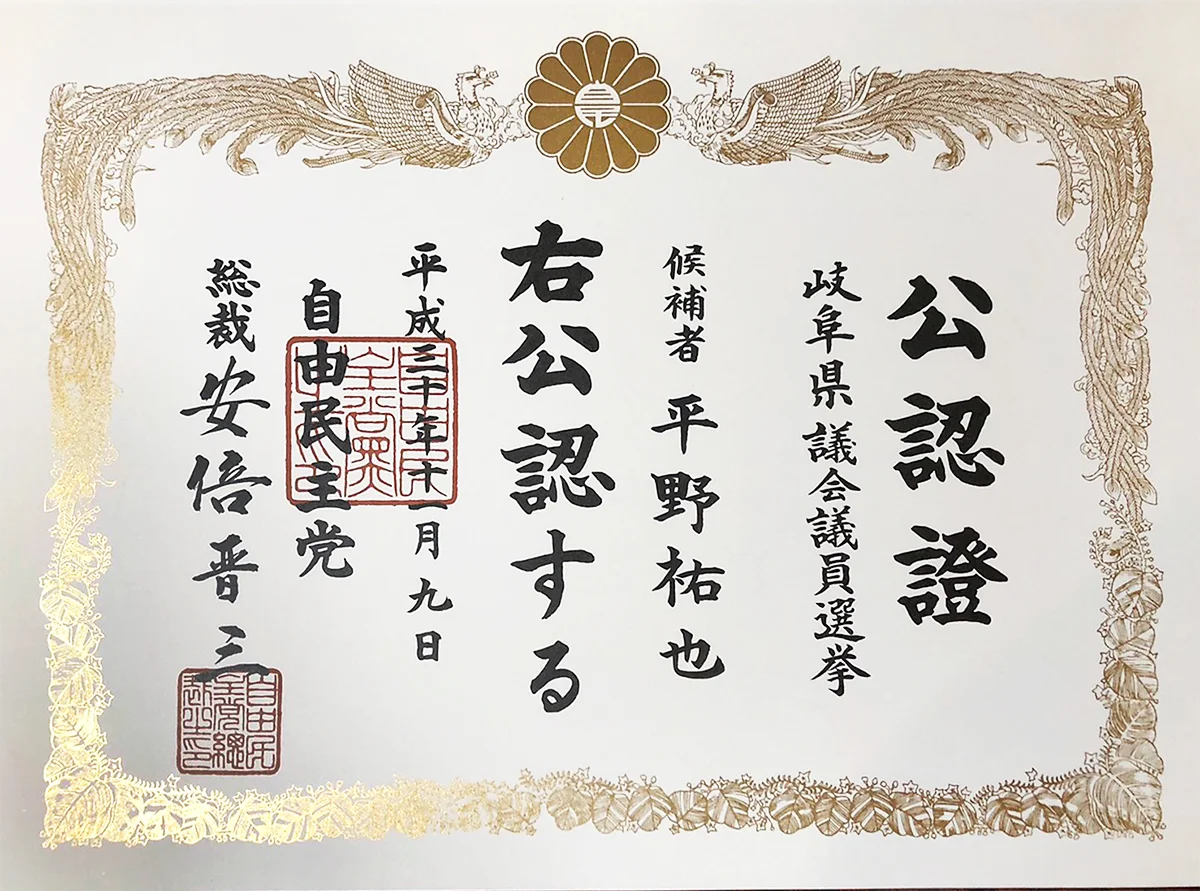 公認證
岐阜県議会議員選挙
候補者 平野祐也
右公認する
平成三十年十一月九日
自由民主党
総裁 安倍晋三